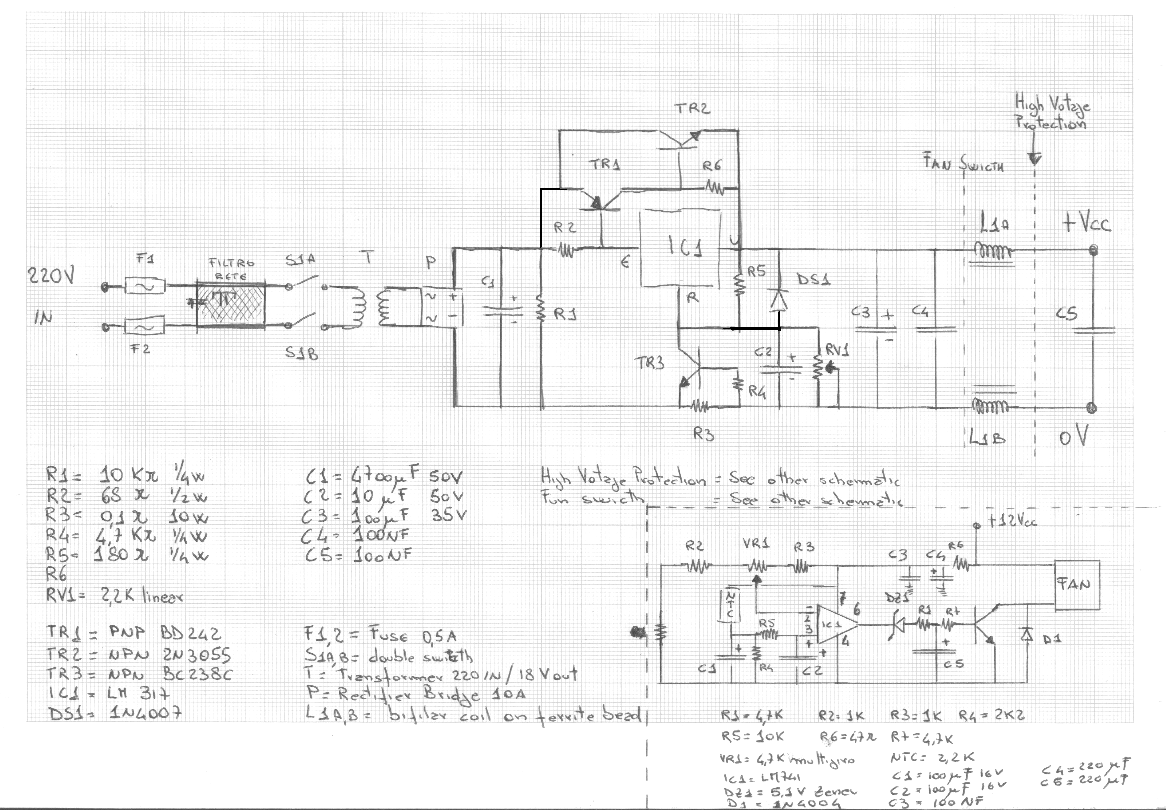 High Votage
Protection
TR2
FAN SWICTH
TR1
R6
L1A
+Vcc
R2
IC1
F1
FILTRO
RETE
S1A
T
P
E
U
220V
C1
+
R5
DS1
~ +
~ -
R
R1
C3
+
-
C4
C5
IN
F2
S1B
TR3
C2
+
-
RV1
R4
R3
L1B
0V
R1= 10 KΩ 1/4w
R2= 68 Ω 1/2w
R3= 0,1Ω 10w
R4= 4,7 KΩ 1/4w
R5= 180 Ω 1/4w
R6
RV1= 2,2K linear
C1= 4700µF 50V
C2= 10 µF 50V
C3= 100µF 35V
C4= 100NF
C5= 100NF
High Votage Protection = See other schematic
Fun swicth = See other schematic
TR1= PNP BD242
TR2= NPN 2N3055
TR3= NPN BC238C
IC1= LM 317
DS1= 1N4007
F1,2= Fuse 0,5A
S1A,B= double switch
T= Transformer 220 IN/18 Vout
P= Rectifier Bridge 10A
L1A,B= bifilar coil on ferrite bead
+12Vcc
R2
VR1
R3
C3
C4
+
R6
FAN
NTC
DZ1
7
2
3
-
+
IC1
6
4
R5
R1
R7
R4
C1
+
C2
+
C5
+
D1
R1= 4,7K R2= 1K R3= 1K R4= 2K2
R5= 10K R6=47Ω R7=4,7K
VR1= 4,7K multigiro NTC= 2,2K
IC1= LM741 C1= 100µF 16V C4= 220 µF
DZ1= 5,1V Zener C2= 100µF 16V C5= 220 µF
D1= 1N4004 C3= 100 NF